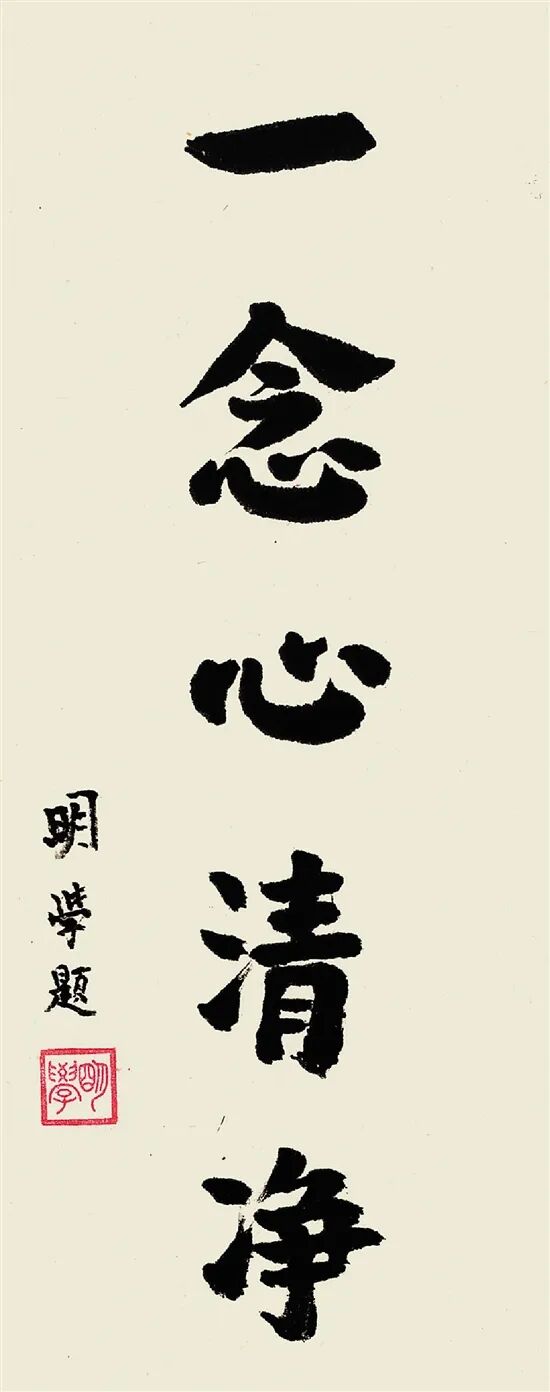 一念心清净
明學題
明學